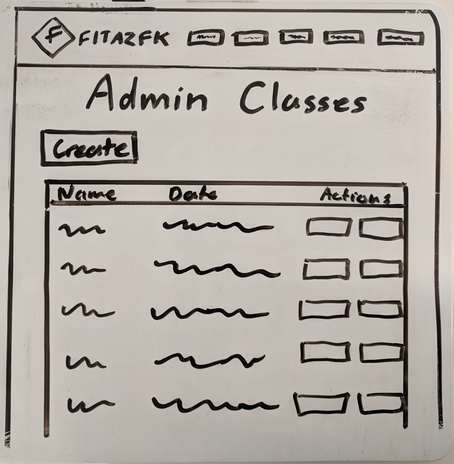 F FITAZFK
Admin Classes
Create
Name Date Actions